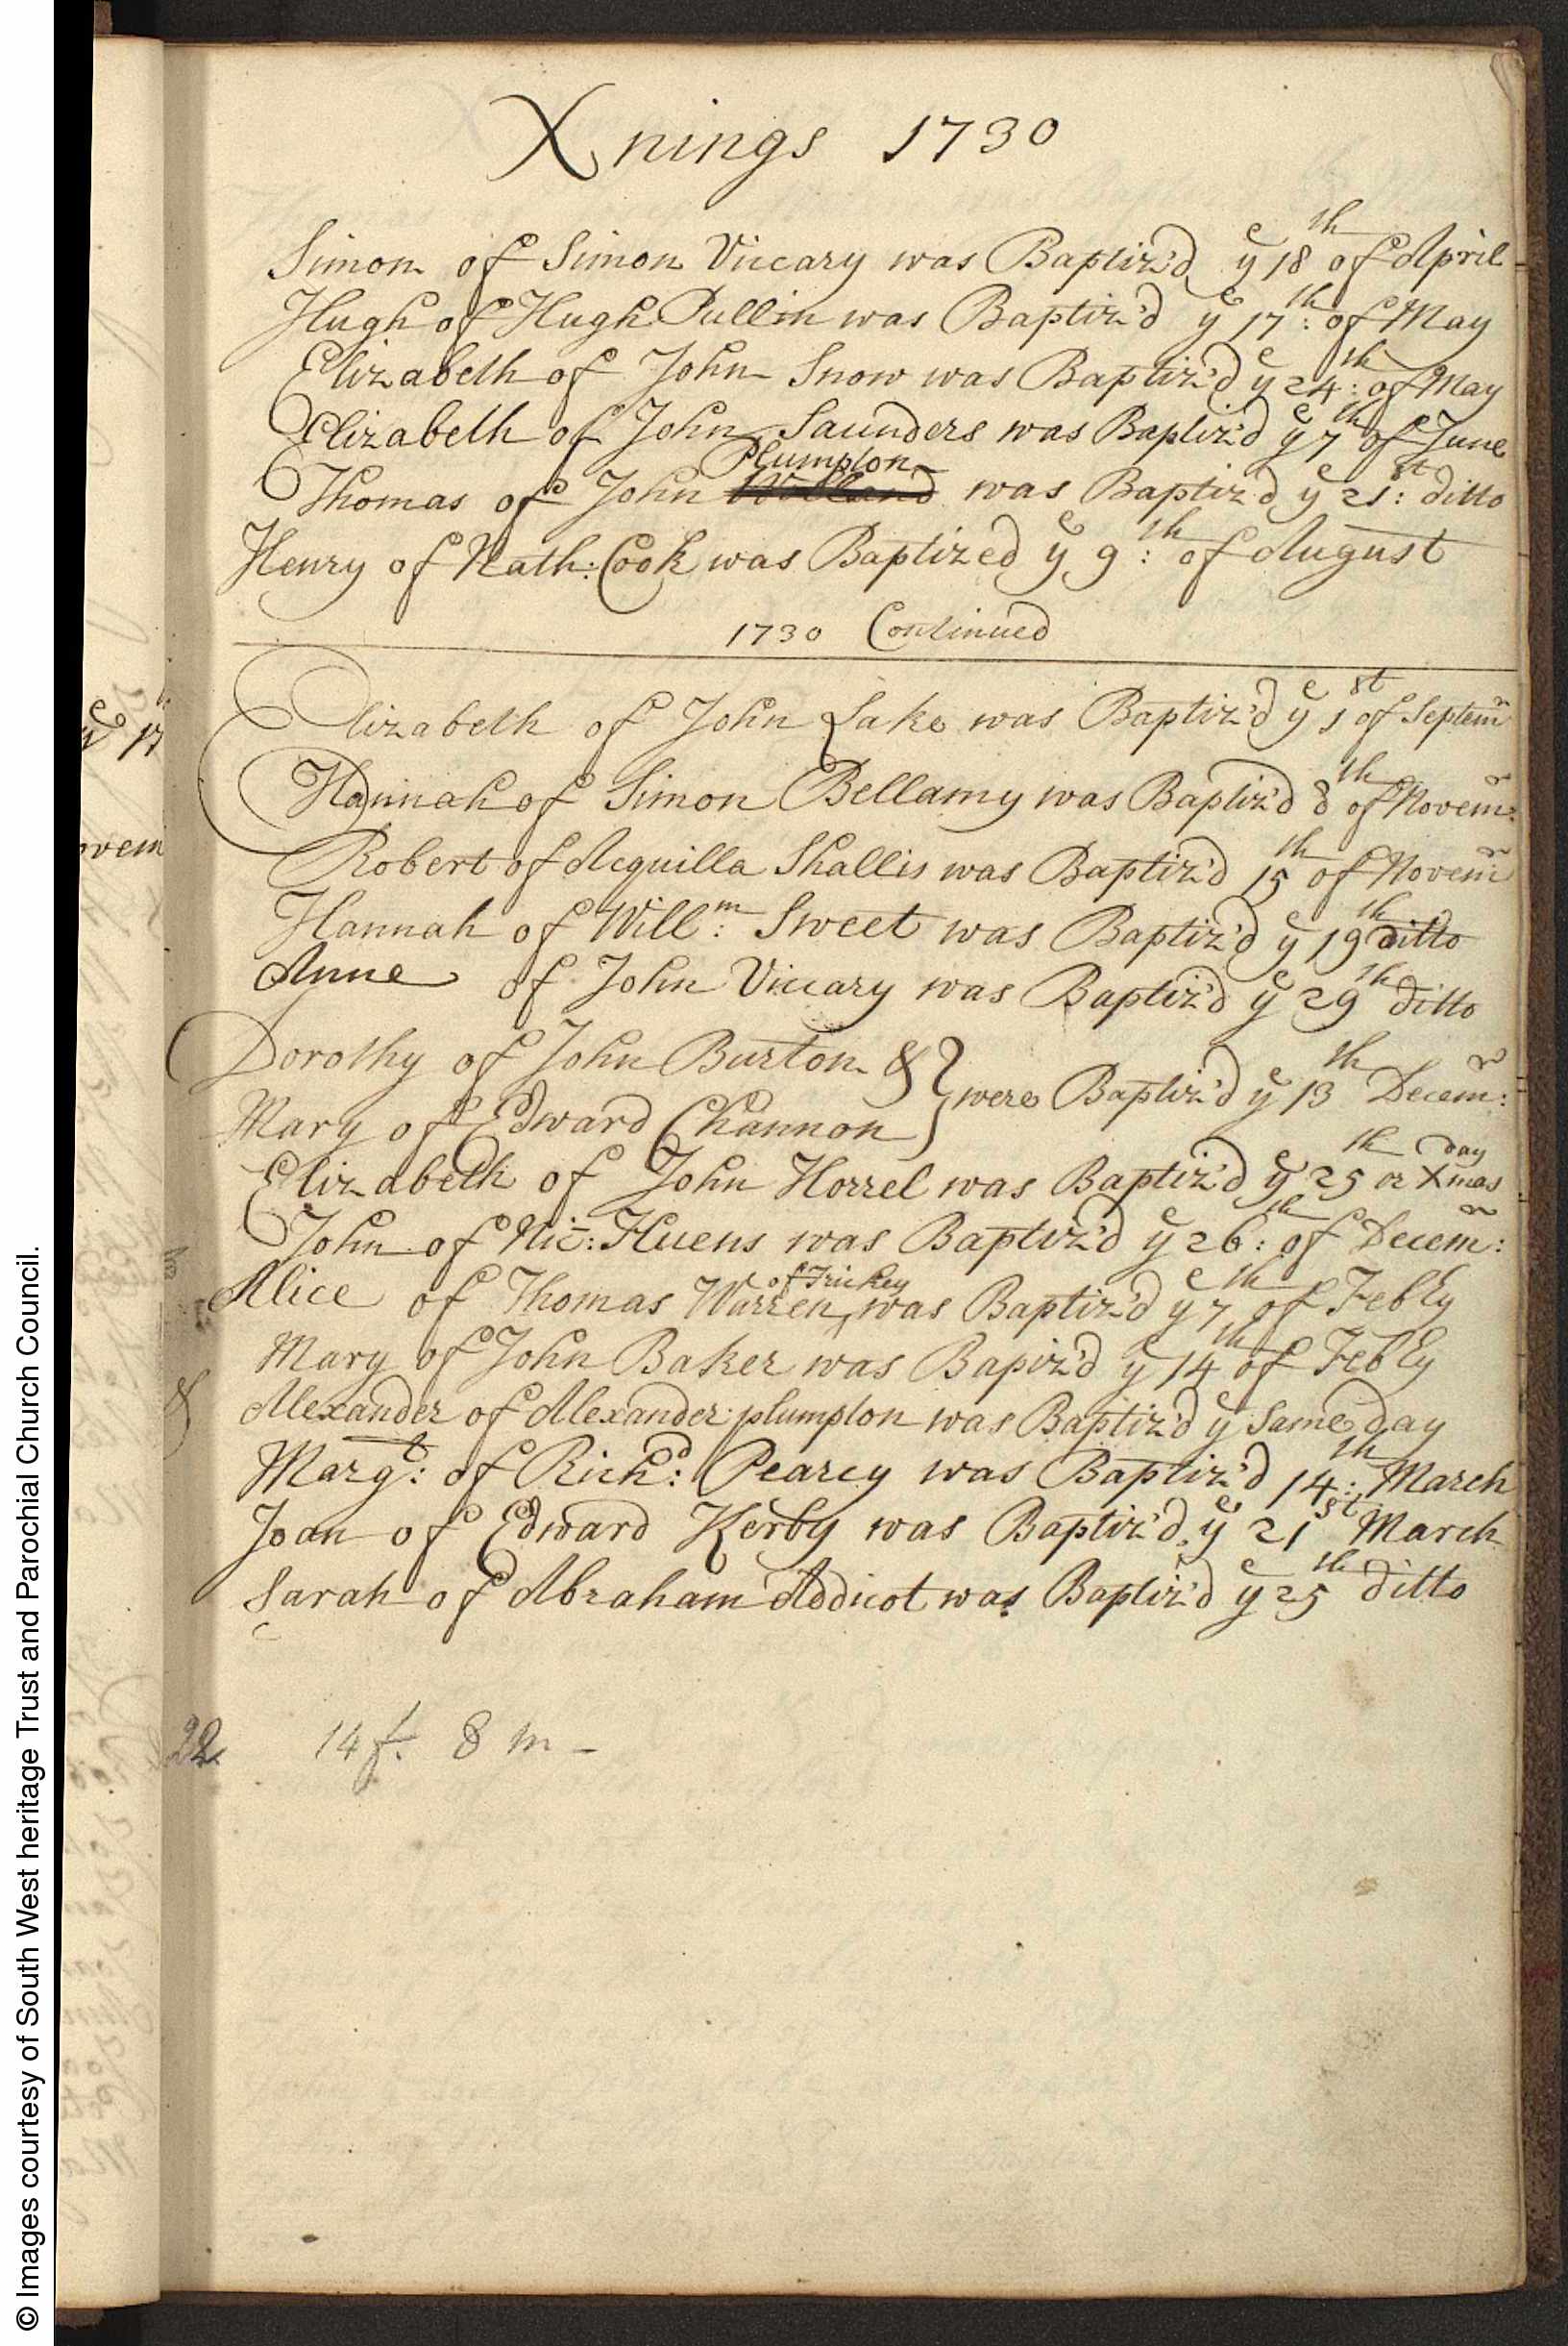 Xnings 1730
Simon of Simon Viccary was Baptiz'd ye 18th of April
Hugh of Hugh Pullin was Baptiz'd ye 17th: of May
Elizabeth of John Snow was Baptiz'd ye 24th: of May
Elizabeth of John Saunders was Baptiz'd ye 7th of June
Plumpton
Thomas of John was Baptiz'd ye 21st: ditto
Henry of Nath: Cook was Baptized ye 9th: of August
1730 Continued
Elizabeth of John Lake was Baptiz'd ye 1st of Septemr
Hannah of Simon Bellamy was Baptiz'd 8th of Novemr:
Robert of Acquilla Shallis was Baptiz'd 15th of Novemr
Hannah of Willm: Sweet was Baptiz'd ye 19th ditto
Anne of John Viccary was Baptiz'd ye 29th ditto
Dorothy of John Burton &
Mary of Edward Channon } were Baptiz'd ye 13th Decemr:
Elizabeth of John Horrel was Baptiz'd ye 25th or Xmas day
John of Nic: Huens was Baptiz'd ye 26th: of Decemr:
of Trickey
Alice of Thomas Warren, was Baptiz'd ye 7th of Febry
Mary of John Baker was Bapiz'd ye 14th of Febry
& Alexander of Alexander plumpton was Baptiz'd ye Same day
Margt: of Richd: Pearcy was Baptiz'd 14th: March
Joan of Edward Kerby was Baptiz'd ye 21st March
Sarah of Abraham Addicot was Baptiz'd ye 25th ditto
22 14 f. 8 m -
ye 17
ovem
© Images courtesy of South West heritage Trust and Parochial Church Council.